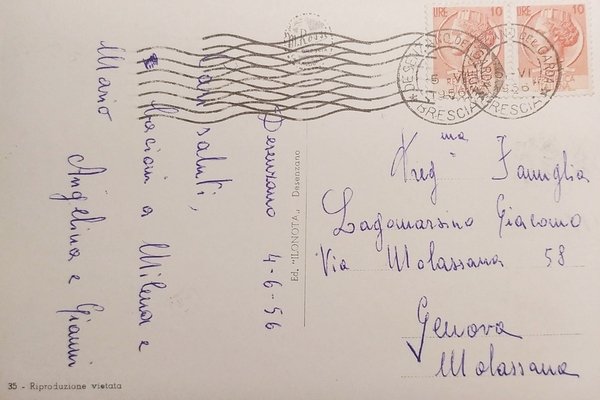 Desenzano 4-6-56
Cari saluti,
Bacioni a Milena e
Mario
Angelina e Gianni
Ed. "ILONOTA„ Desenzano
35 - Riproduzione vietata
LIRE 10
LIRE 10
DESENZANO DEL GARDA
BRESCIA
DESENZANO DEL GARDA
BRESCIA
Preg ma Famiglia
Lagomarsino Giacomo
Via Molassana 58
Genova
Molassana